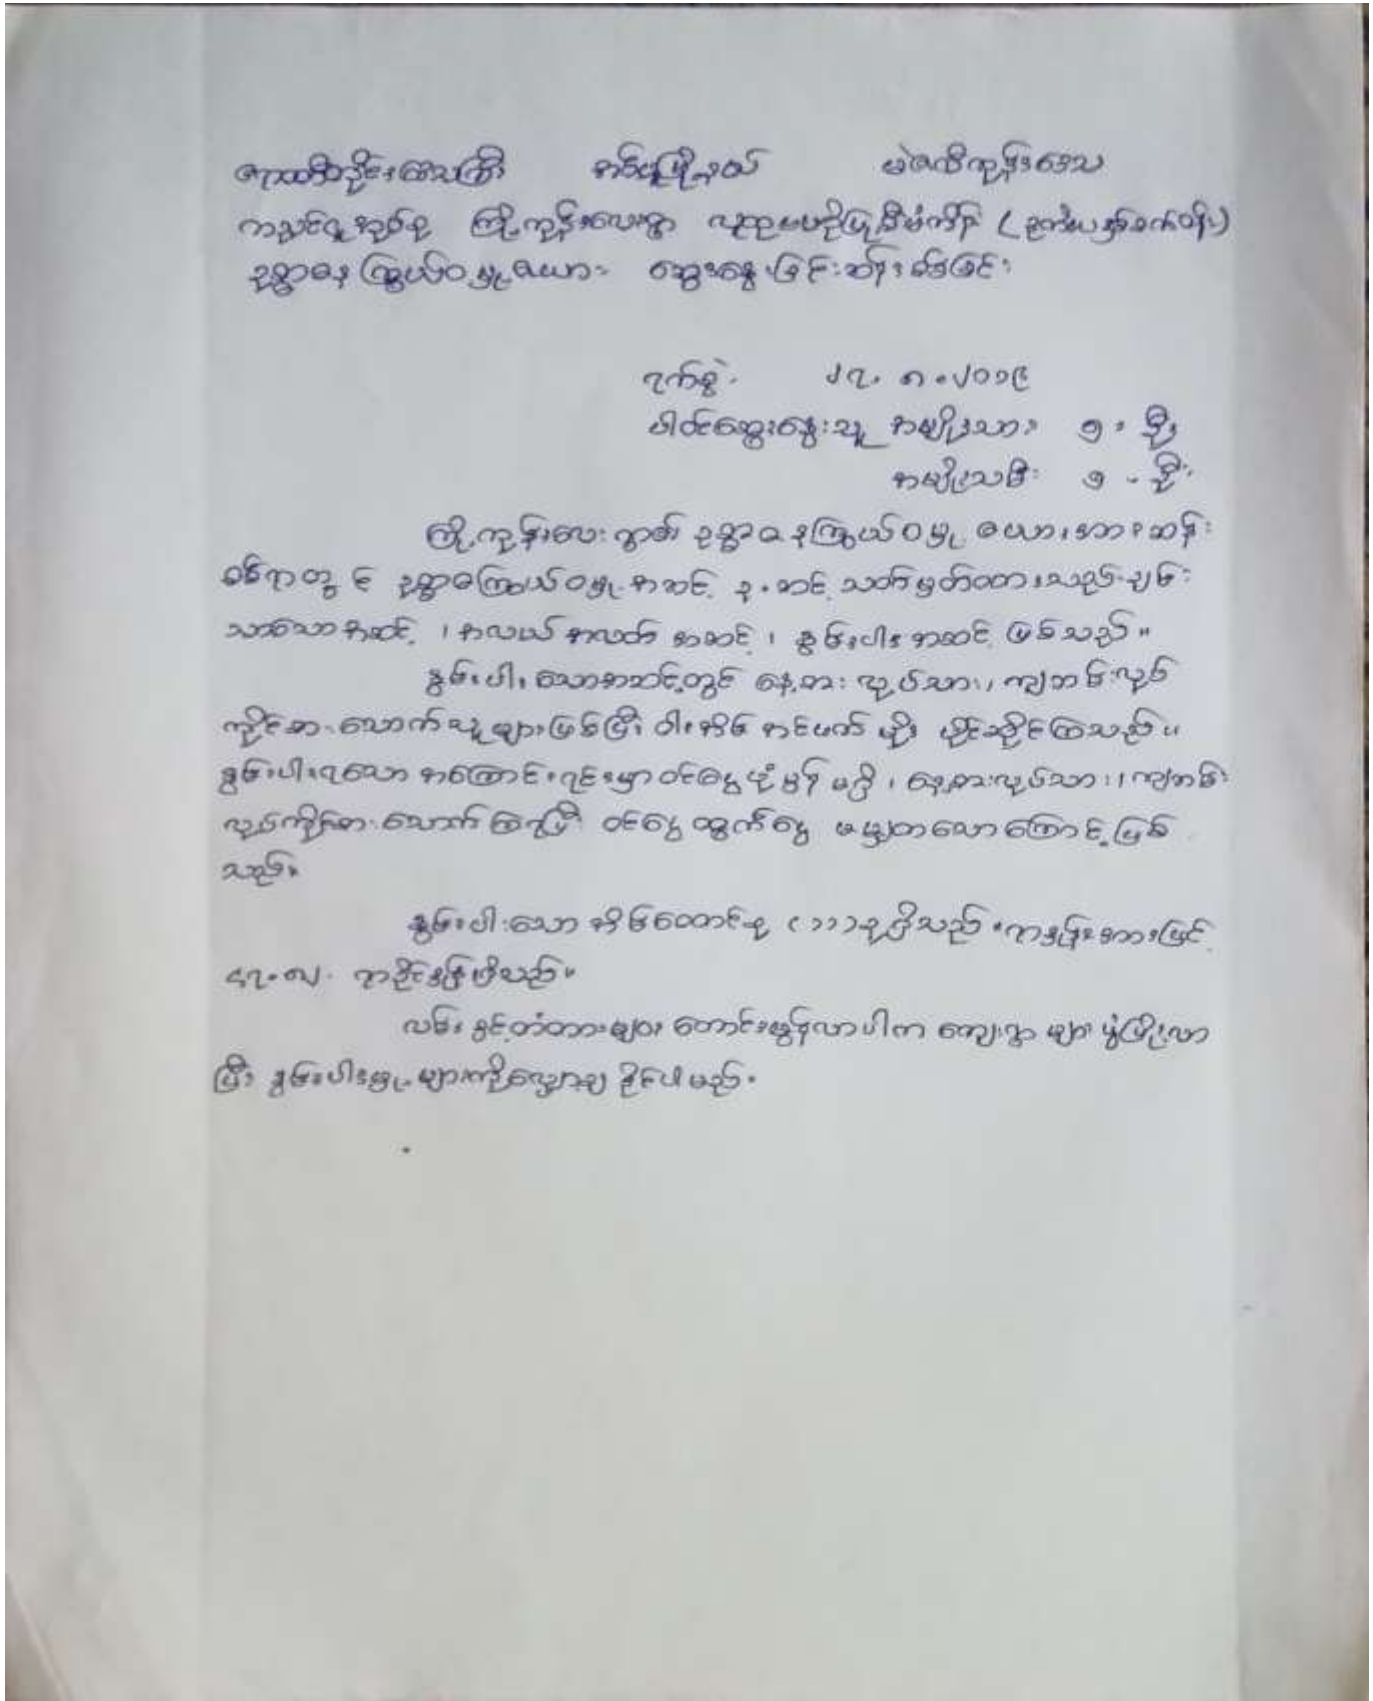 ဧရာဝတီတိုင်းဒေသကြီး အင်္ဂပူမြို့နယ် မဲဇလီကုန်းဒေသ
ကညင်လူအုပ်စု ကြို့ကုန်းလေးရွာ လူထုဗဟိုပြုစီမံကိန်း (ဒုတိယနှစ်ဝက်)
ဥစ္စာဓန ကြွယ်ဝမှု ဇယား ဆွေးနွေးခြင်းဆန်းစစ်ခြင်း
ရက်စွဲ၊ ၂၇.၈.၂၀၁၉
ပါဝင်ဆွေးနွေးသူ အမျိုးသား ၅ - ဦး
အမျိုးသမီး ၅ - ဦး
ကြို့ကုန်းလေးရွာ၏ ဥစ္စာဓနကြွယ်ဝမှု ဇယားအားဆန်း
စစ်ရာတွင် ဥစ္စာကြွယ်ဝမှုအဆင့် ၃.ဆင့် သတ်မှတ်ထားသည်။ ချမ်း
သာသောအဆင့်၊ အလယ်အလတ်အဆင့်၊ နွမ်းပါးအဆင့် ဖြစ်သည်။
နွမ်းပါးသောအဆင့်တွင် နေ့စားလုပ်သား၊ ကျဘမ်းလုပ်
ကိုင်စားသောက်သူများဖြစ်ပြီး ဝါးအိမ် အင်ဖက်မိုး ပိုင်ဆိုင်ကြသည်။
နွမ်းပါးရသော အကြောင်းရင်းမှာ ဝင်ငွေပုံမှန်မရှိ၊ နေ့စားလုပ်သား၊ ကျဘမ်း
လုပ်ကိုင်စားသောက်ကြရပြီး ဝင်ငွေထွက်ငွေ မမျှတသောကြောင့်ဖြစ်
သည်။
နွမ်းပါးသော အိမ်ထောင်စု (၁၁) စုရှိသည်။ ရာနှုန်းအားဖြင့်
၄၇.၈၂ ရာခိုင်နှုန်းရှိသည်။
လမ်းနှင့်တံတားများ ကောင်းမွန်လာပါက ကျေးရွာများ ဖွံ့ဖြိုးလာ
ပြီး နွမ်းပါးမှုများကိုလျှော့ချနိုင်ပါမည်။